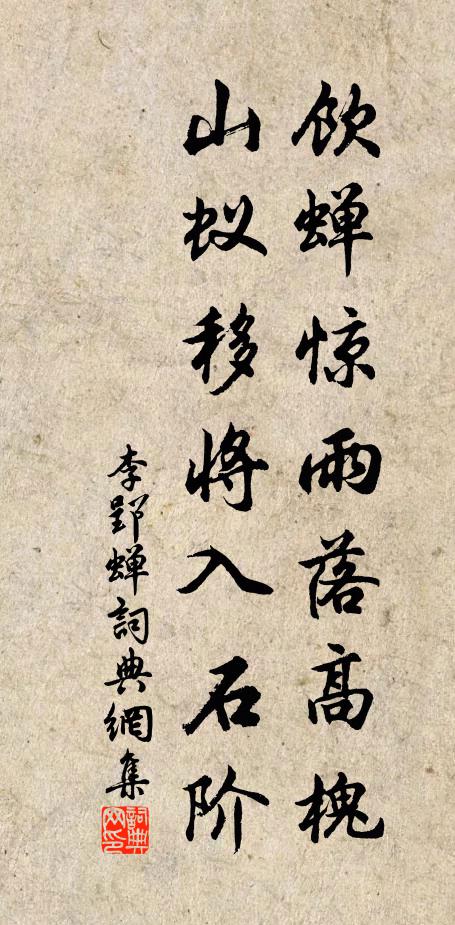 饮蝉惊雨落高槐
山蚁移将入石阶
李郢蝉詞典網集
詞典网印